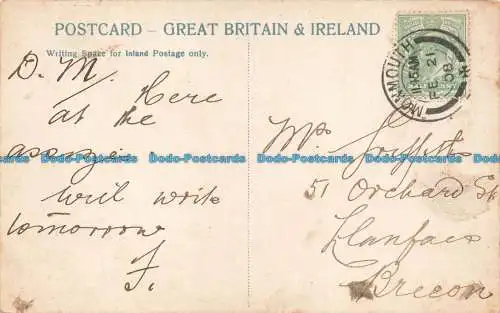 POSTCARD – GREAT BRITAIN & IRELAND
Writing Space for Inland Postage only.
D. M.
Here
at the
will write
tomorrow
F.
Mrs Griffiths
51 Orchard St
Llanfaes
Brecon
MONMOUTH
11.45AM
FE 21
08
Dodo-Postcards Dodo-Postcards Dodo-Postcards Dodo-Postcards